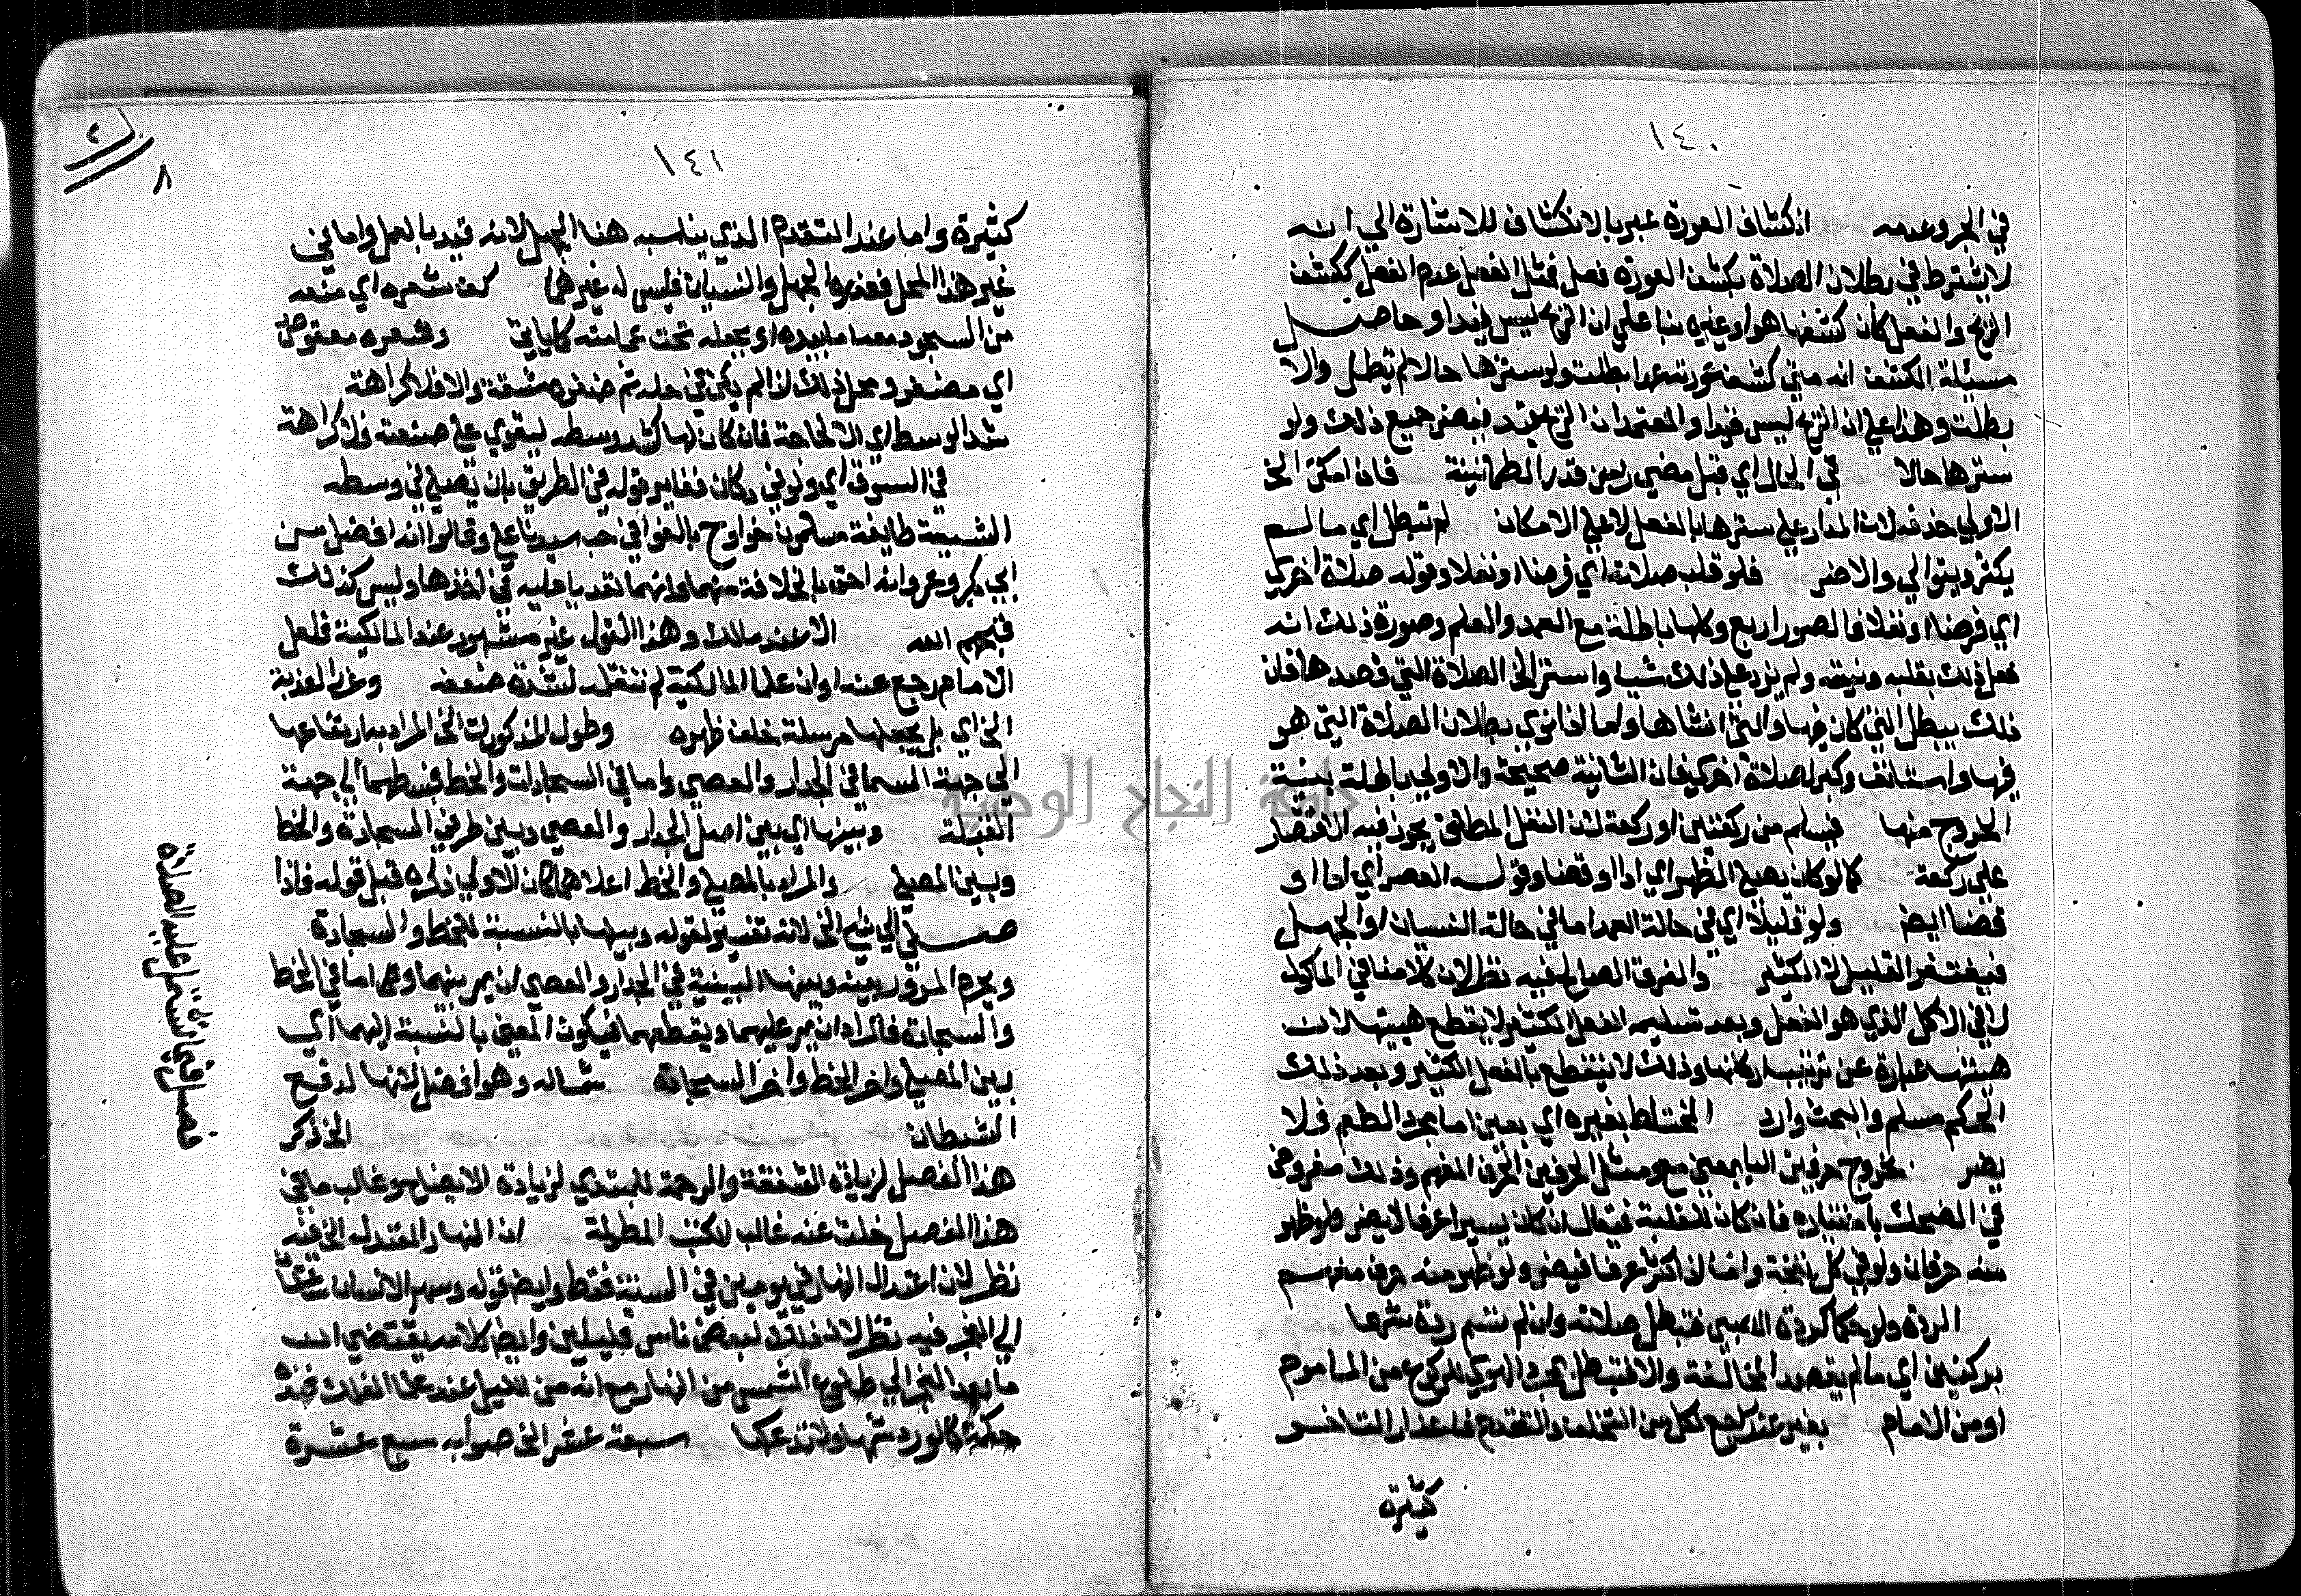 ١٤٠
في الجر وعدمه انكشاف العورة عبر بالانكشاف للاشارة الي انه
لا يشترط في بطلان الصلاة بكشف العورة فعل فمثل الفعل عدم الفعل ككشف
الريح والفعل كان كشفها هو او غيره بنا علي ان الريح ليس قيدا وحاصل
مسئلة الكشف انه متي كشف عورته عمدا بطلت ولو سترها حالا لم تبطل والا
بطلت وهذا علي ان الريح ليس قيدا والمعتمد ان الريح قيد فيضر جميع ذلك ولو
سترها حالا في الحال اي قبل مضي زمن قدر الطمانينة فان امكن الخ
الاولي حذفه لان المدار علي سترها بالفعل لا علي الامكان لم تبطل اي ما لم
يكثر ويتوالي والا ضر فلو قلب صلاته اي فرضا او نفلا وقوله صلاة اخري
اي فرضا او نفلا فالصور اربع وكلها باطلة مع العمد والعلم وصورة ذلك انه
فعل ذلك بقلبه ونيته ولم يزد علي ذلك شيا واستمر الخ الصلاة التي قصدها فان
ذلك يبطل التي كان فيها والتي انشاها واما اذا نوي بطلان الصلاة التي هو
فيها واستانف وكبر لصلاة اخري فان الثانية صحيحة والاولي باطلة بنية
الخروج منها فيسلم من ركعتين او ركعة لان النفل المطلق يجوز فيه الاقتصار
علي ركعة كما لو كان يصلي الظهر اي ادا او قضا وقوله العصر اي ادا او
قضا ايضا ولو قليلا اي في حالة العمد اما في حالة النسيان او الجهل
فيغتفر القليل لا الكثير والفرق الصالح فيه نظر لان كلامنا في الماكول
لا في الاكل الذي هو الفعل وبعد تسليمه الفعل الكثير لا يقطع هيئتها لان
هيئتها عبارة عن ترتيب اركانها وذلك لا ينقطع بالفعل الكثير وبعد ذلك
الحكم مسلم والبحث وارد المختلط بغيره اي بعين اما مجرد الطعم فلا
يضر بخروج حرفين البا بمعني مع ومثل الحرفين الحرف المفهم وذلك مفروض
في الضحك باختياره فان كان لغلبة فيقال ان كان يسيرا عرفا لا يضر ولو ظهر
منه حرفان ولو في كل نفخة واما اذا كثر عرفا فيضر ولو ظهر منه حرف مفهم
الردة ولو حكما كردة الصبي فتبطل صلاته وان لم تسم ردة شرعا
بركنين اي ما لم يقصد المخالفة والا فتبطل بمجرد الهوي للركوع من الماموم
او من الامام بغير عذر راجع لكل من التخلف والتقدم فاعذار المتاخر
كثيرة
١٤١
كثيرة واما عند التقدم الذي يناسبه هنا الجهل لانه قيد بالعمل واما في
غير هذا المحل فعذره الجهل والنسيان فليس له غيرهما كف شعره اي منعه
من السجود معه بيده او بجعله تحت عمامته كما ياتي وشعره معقوص
اي مضفور ومحل ذلك ان لم يكن في حله ثم ضفره مشقة والا فلا كراهة
شد الوسط اي الا لحاجة فان كان لها كشد وسطه ليقوي علي صنعته فلا كراهة
في السوق اي ولو في دكان فغاير قوله في الطريق بان يصلي في وسطه
الشيعة طايفة مسلمون خوارج بالغوا في حب سيدنا علي وقالوا انه افضل من
ابي بكر وعمر وانه احق بالخلافة منهما وانهما تعديا عليه في اخذها وليس كذلك
قبحهم الله الا عند مالك وهذا القول غير مشهور عند المالكية فلعل
الامام رجع عنه او ان علما المالكية لم تنقله لشدة ضعفه وغرز العذبة
الخ اي بل يجعلها مرسلة خلف ظهره وطول المذكورات الخ المراد به ارتفاعها
الي جهة السما في الجدار والعصي واما في السجادات والخط فبسطهما الي جهة
القبلة وبينها اي بين اصل الجدار والعصي وبين طرفي السجادة والخط
وبين المصلي والمراد بالمصلي والخط اعلاهما كان الاولي ذكره قبل قوله فاذا
صلي الي شي الخ لانه تفسير لقوله وبينها بالنسبة للخط والسجادة
ويحرم المرور بينه وبينها البينية في الجدار والعصي ان يمر بينهما وبينه اما في الخط
والسجادة فالمراد ان يمر عليهما ويقطعهما فيكون المعني بالنسبة اليهما اي
بين المصلي واخر الخط واخر السجادة شماله وهو افضل لانها لدفع
الشيطان الخ ذكر
هذا الفصل لزيادة الشفقة والرحمة للمبتدي لزيادة الايضاح وغالب ما في
هذا الفصل خلت عنه غالب الكتب المطولة ان النهار المعتدل الخ فيه
نظر لان اعتدال النهار في يومين في السنة فقط وايضا قوله وسهر الانسان
الي الفجر فيه نظر لان ذلك لبعض ناس قليلين وايضا كلامه يقتضي ان
ما بعد الفجر الي طلوع الشمس من النهار مع انه من الليل عند علما الفلك
حكمة كالورد شمها ولا تدعكها سبعة عشر الخ صوابه سبع عشرة
فصل فيما تشتمل عليه الصلاة
٨